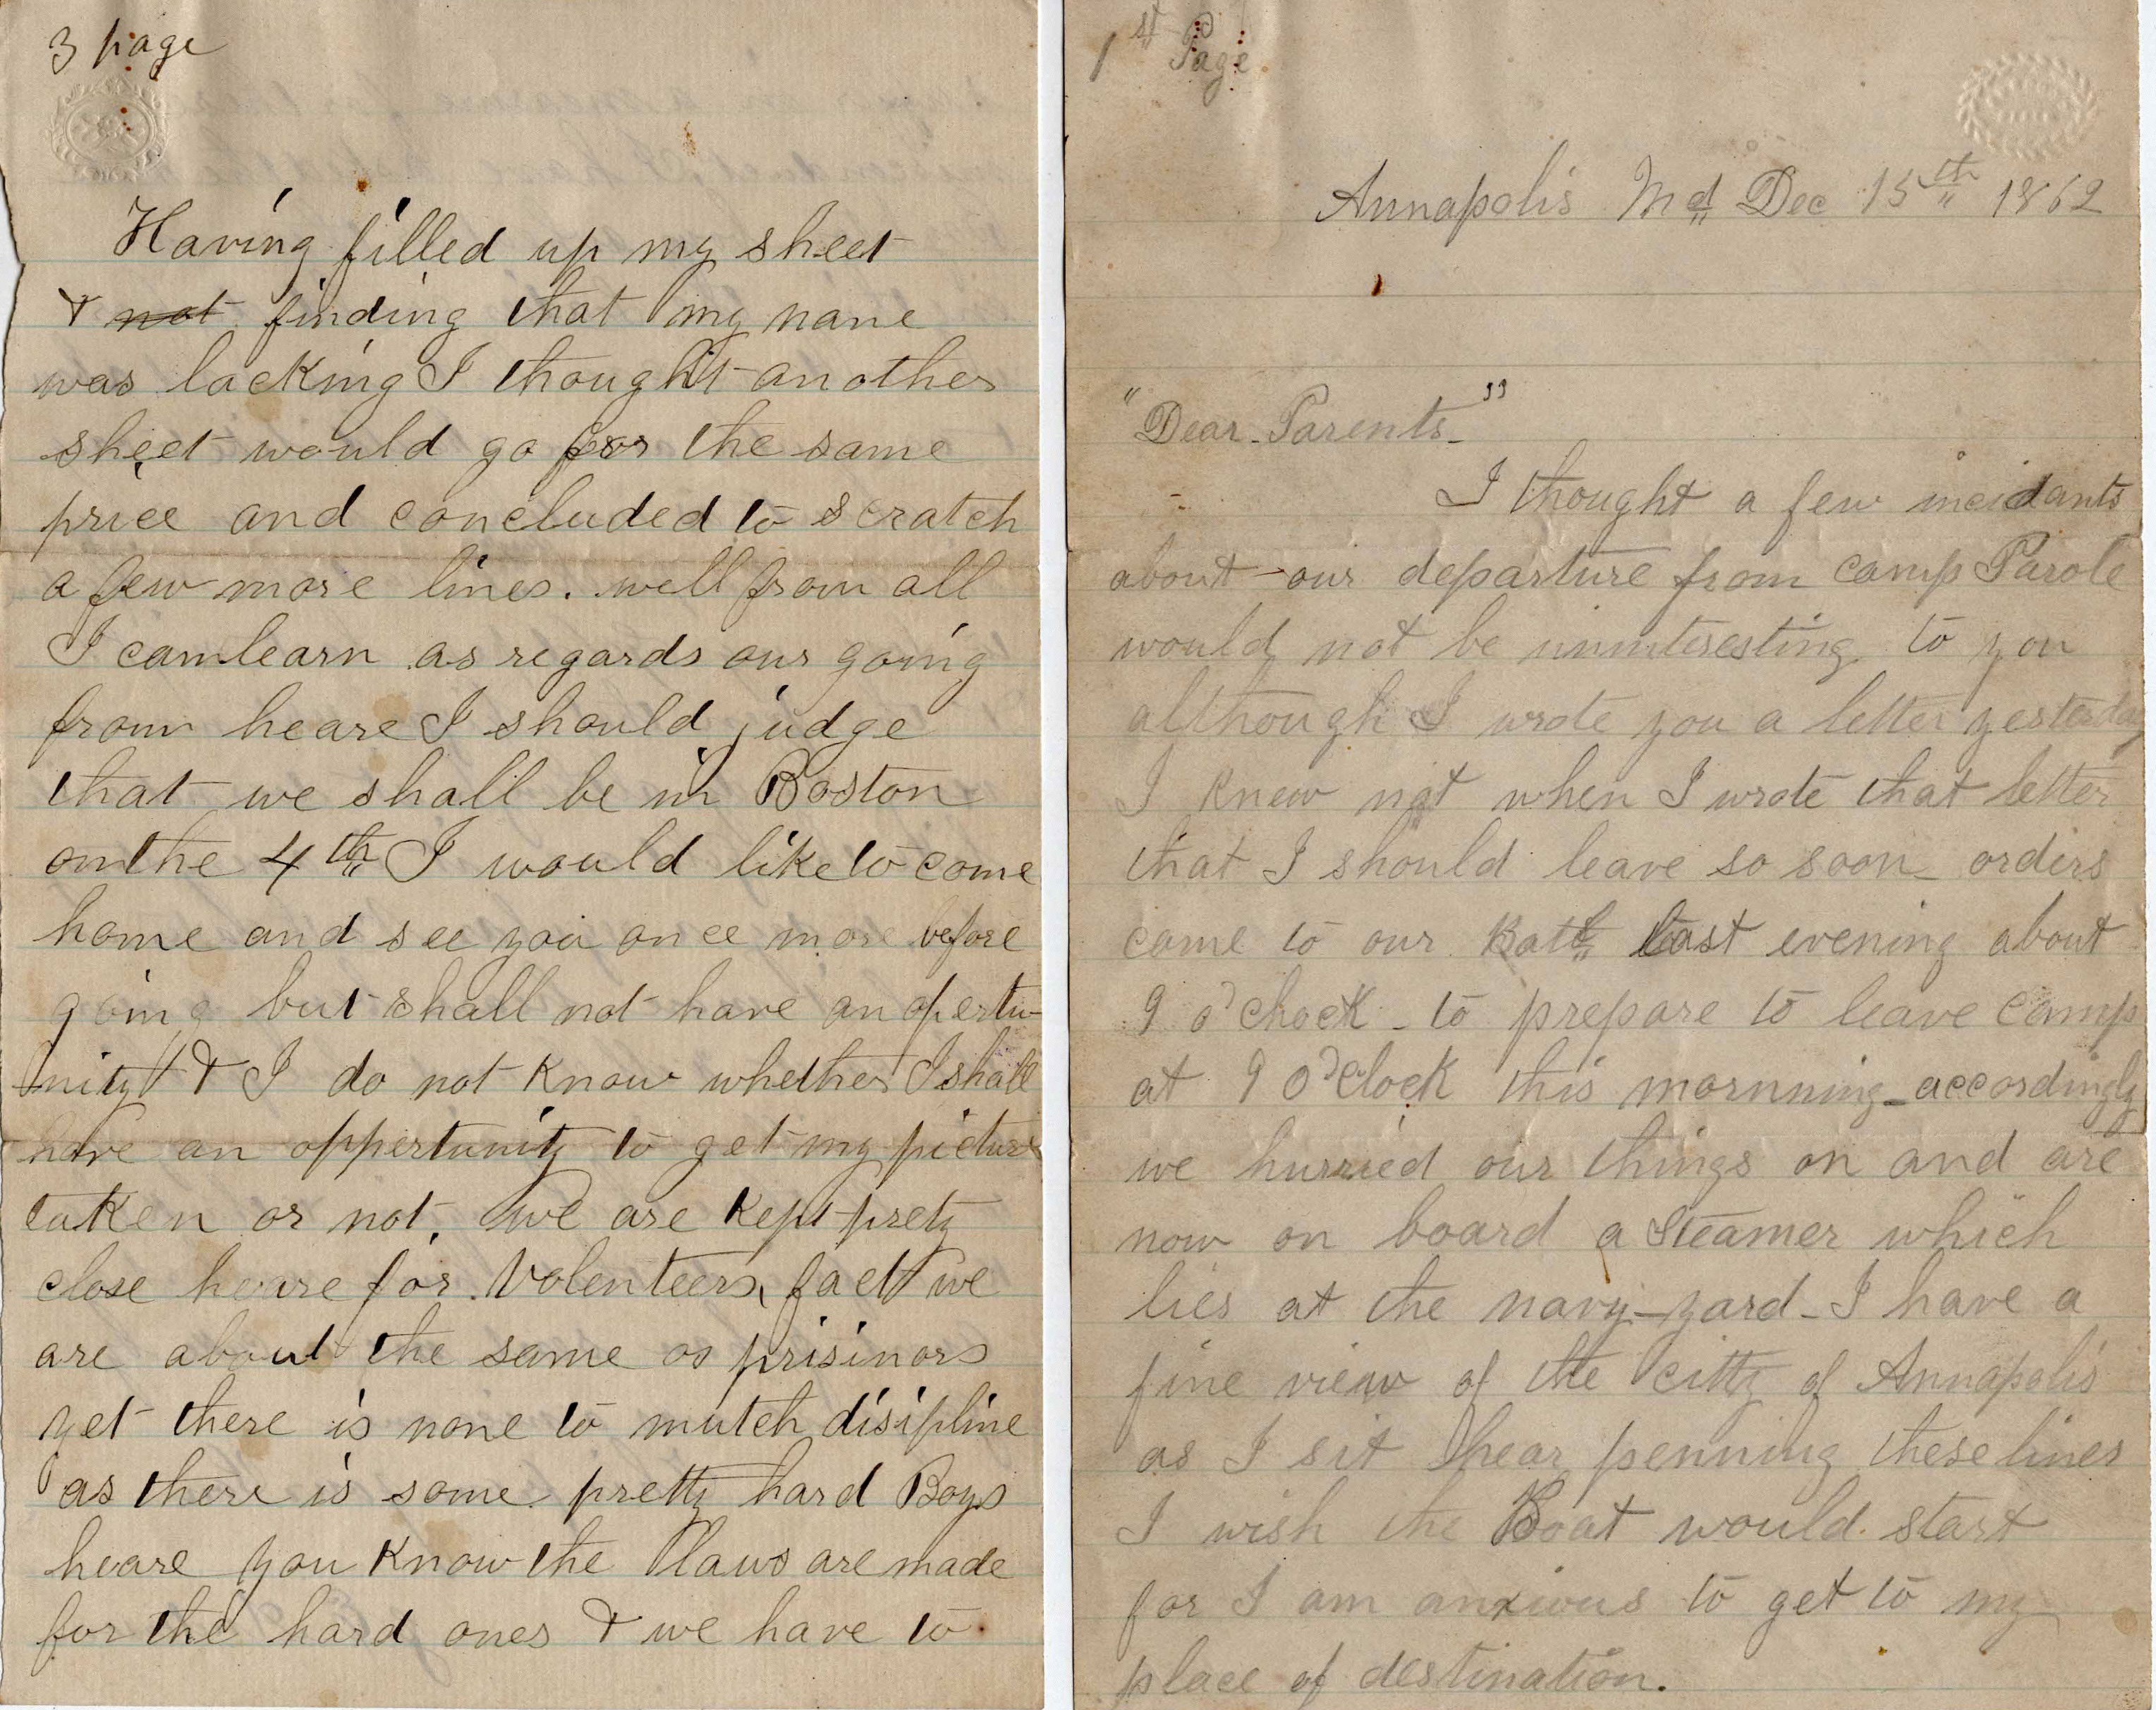 3 page
Having filled up my sheet
& not finding that my name
was lacking I thought another
sheet would go for the same
price and concluded to scratch
a few more lines. well from all
I can learn as regards our going
from heare I should judge
that we shall be in Boston
on the 4th I would like to come
home and see you once more before
going but shall not have an opertu-
nity & I do not know whether I shall
have an oppertunity to get my picture
taken or not. we are kept prety
close heare for Volenteers, fact we
are about the same as prisinors
yet there is none to mutch disipline
as there is some pretty hard Boys
heare you know the laws are made
for the hard ones & we have to
1st Page
Annapolis Md Dec 15th 1862
"Dear Parents"
I thought a few incidants
about our departure from camp Parole
would not be uninteresting to you
although I wrote you a letter yesterday
I knew not when I wrote that letter
that I should leave so soon orders
came to our Batt last evening about
9 o'chock - to prepare to leave camp
at 9 o'clock this mornning - accordingly
we hurried our things on and are
now on board a Steamer which
lies at the navy-yard - I have a
fine view of the citty of Annapolis
as I sit hear penning these lines
I wish the Boat would start
for I am anxious to get to my
place of destination.